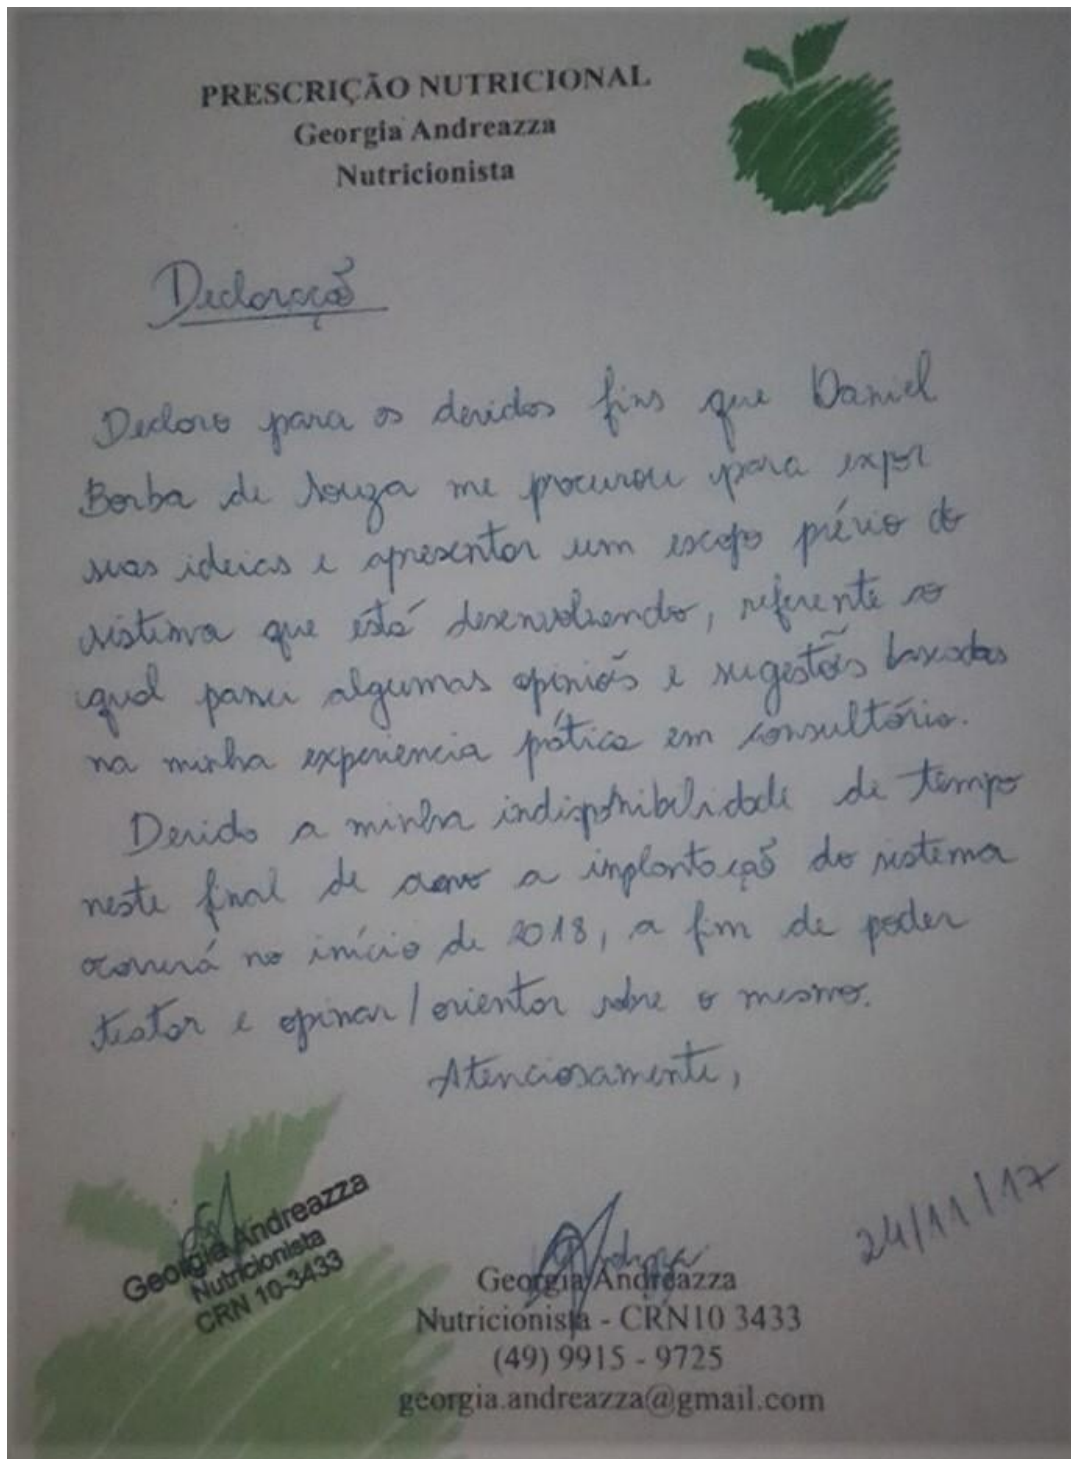 PRESCRIÇÃO NUTRICIONAL
Georgia Andreazza
Nutricionista
Declaração
Declaro para os devidos fins que Daniel
Borba de Souza me procurou para expor
suas ideias e apresentar um escopo prévio do
sistema que está desenvolvendo, referente ao
qual passei algumas opiniões e sugestões baseadas
na minha experiencia prática em consultório.
Devido a minha indisponibilidade de tempo
neste final de ano a implantação do sistema
ocorrerá no início de 2018, a fim de poder
testar e opinar/orientar sobre o mesmo.
Atenciosamente,
24/11/17
Georgia Andreazza
Nutricionista
CRN 10-3433
Georgia Andreazza
Nutricionista - CRN10 3433
(49) 9915 - 9725
georgia.andreazza@gmail.com